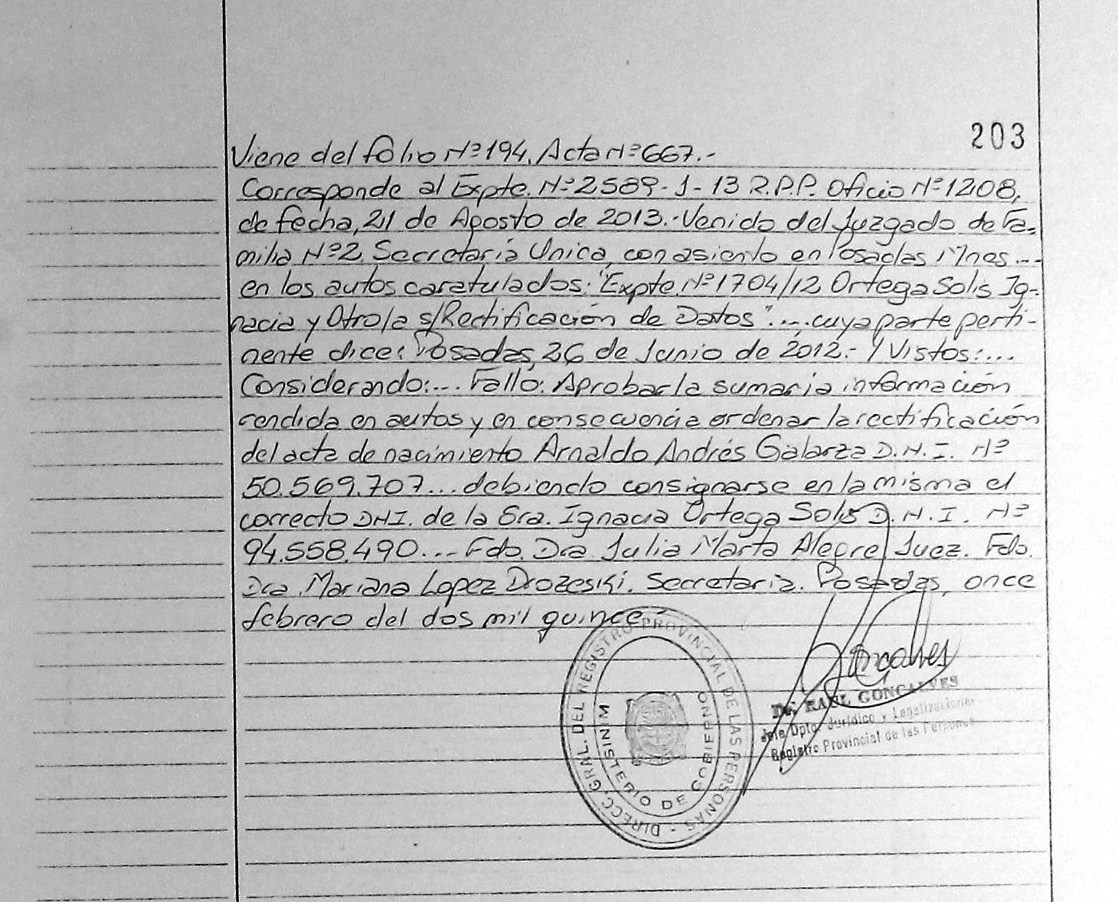 203
Viene del folio Nº194, Acta Nº667.-
Corresponde al Expte. Nº2589-J-13 R.P.P. Oficio Nº1208,
de fecha, 21 de Agosto de 2013.- Venido del Juzgado de Fa-
milia Nº2, Secretaría Unica, con asiento en Posadas Mnes...
en los autos caratulados: "Expte. Nº1704/12 Ortega Solis Ig-
nacia y Otro/a s/Rectificación de Datos"... cuya parte perti-
nente dice: Posadas, 26 de Junio de 2012.- Y Vistos:...
Considerando:... Fallo: Aprobar la sumaria información
rendida en autos y en consecuencia ordenar la rectificación
del acta de nacimiento Arnaldo Andrés Galarza D.N.I. Nº
50.569.707... debiendo consignarse en la misma el
correcto DNI. de la Sra. Ignacia Ortega Solis D.N.I. Nº
94.558.490... Fdo. Dra Julia Marta Alegre, Juez. Fdo.
Dra. Mariana Lopez Drozeski. Secretaria. Posadas, once
febrero del dos mil quince.-
DIRECC. GRAL. DEL REGISTRO PROVINCIAL DE LAS PERSONAS -
MINISTERIO DE GOBIERNO
Goncalves
Dr. RAUL GONCALVES
Jefe Dpto. Jurídico y Legalizaciones
Registro Provincial de las Personas